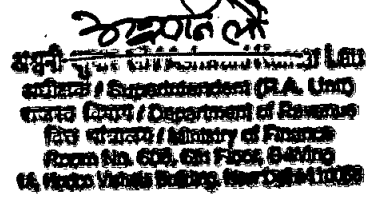 अश्वनि लौ
अश्वनी कुमार लौ / Ashwani Kumar Lau
अधीक्षक / Superintendent (R.A. Unit)
राजस्व विभाग / Department of Revenue
वित्त मंत्रालय / Ministry of Finance
Room No. 605, 6th Floor, B-Wing
14, Hudco Vishala Building, New Delhi-110066